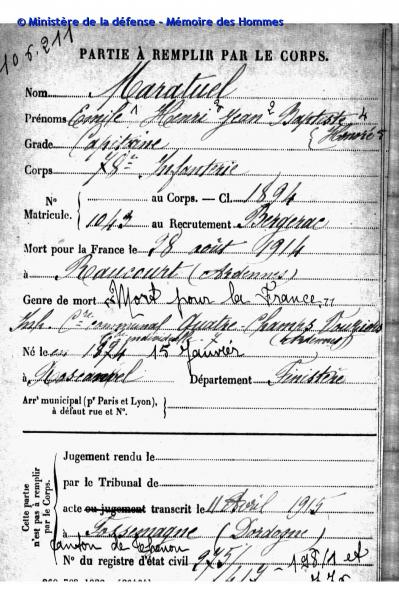 © Ministère de la défense - Mémoire des Hommes
10.5.211
PARTIE À REMPLIR PAR LE CORPS.
Nom Maratuel
Prénoms Emile 1 Henri 2 Jean 3 Baptiste 4
(Honoré 5
Grade Capitaine
Corps 78e Infanterie
N° Matricule. { au Corps. — Cl. 1894
1043 au Recrutement Bergerac
Mort pour la France le 28 août 1914
à Raucourt (Ardennes)
Genre de mort Mort pour la France
Inh. Cre communal Quatre-Champs Vouziers
(Ardennes)
Né le 1874 15 Janvier
à Roscanvel Département Finistère
Arrt municipal (pr Paris et Lyon), à défaut rue et N°. {
Cette partie n'est pas à remplir par le Corps.
Jugement rendu le
par le Tribunal de
acte ou jugement transcrit le 11 Avril 1915
à Fossemagne (Dordogne)
canton de Thenon
N° du registre d'état civil 975/